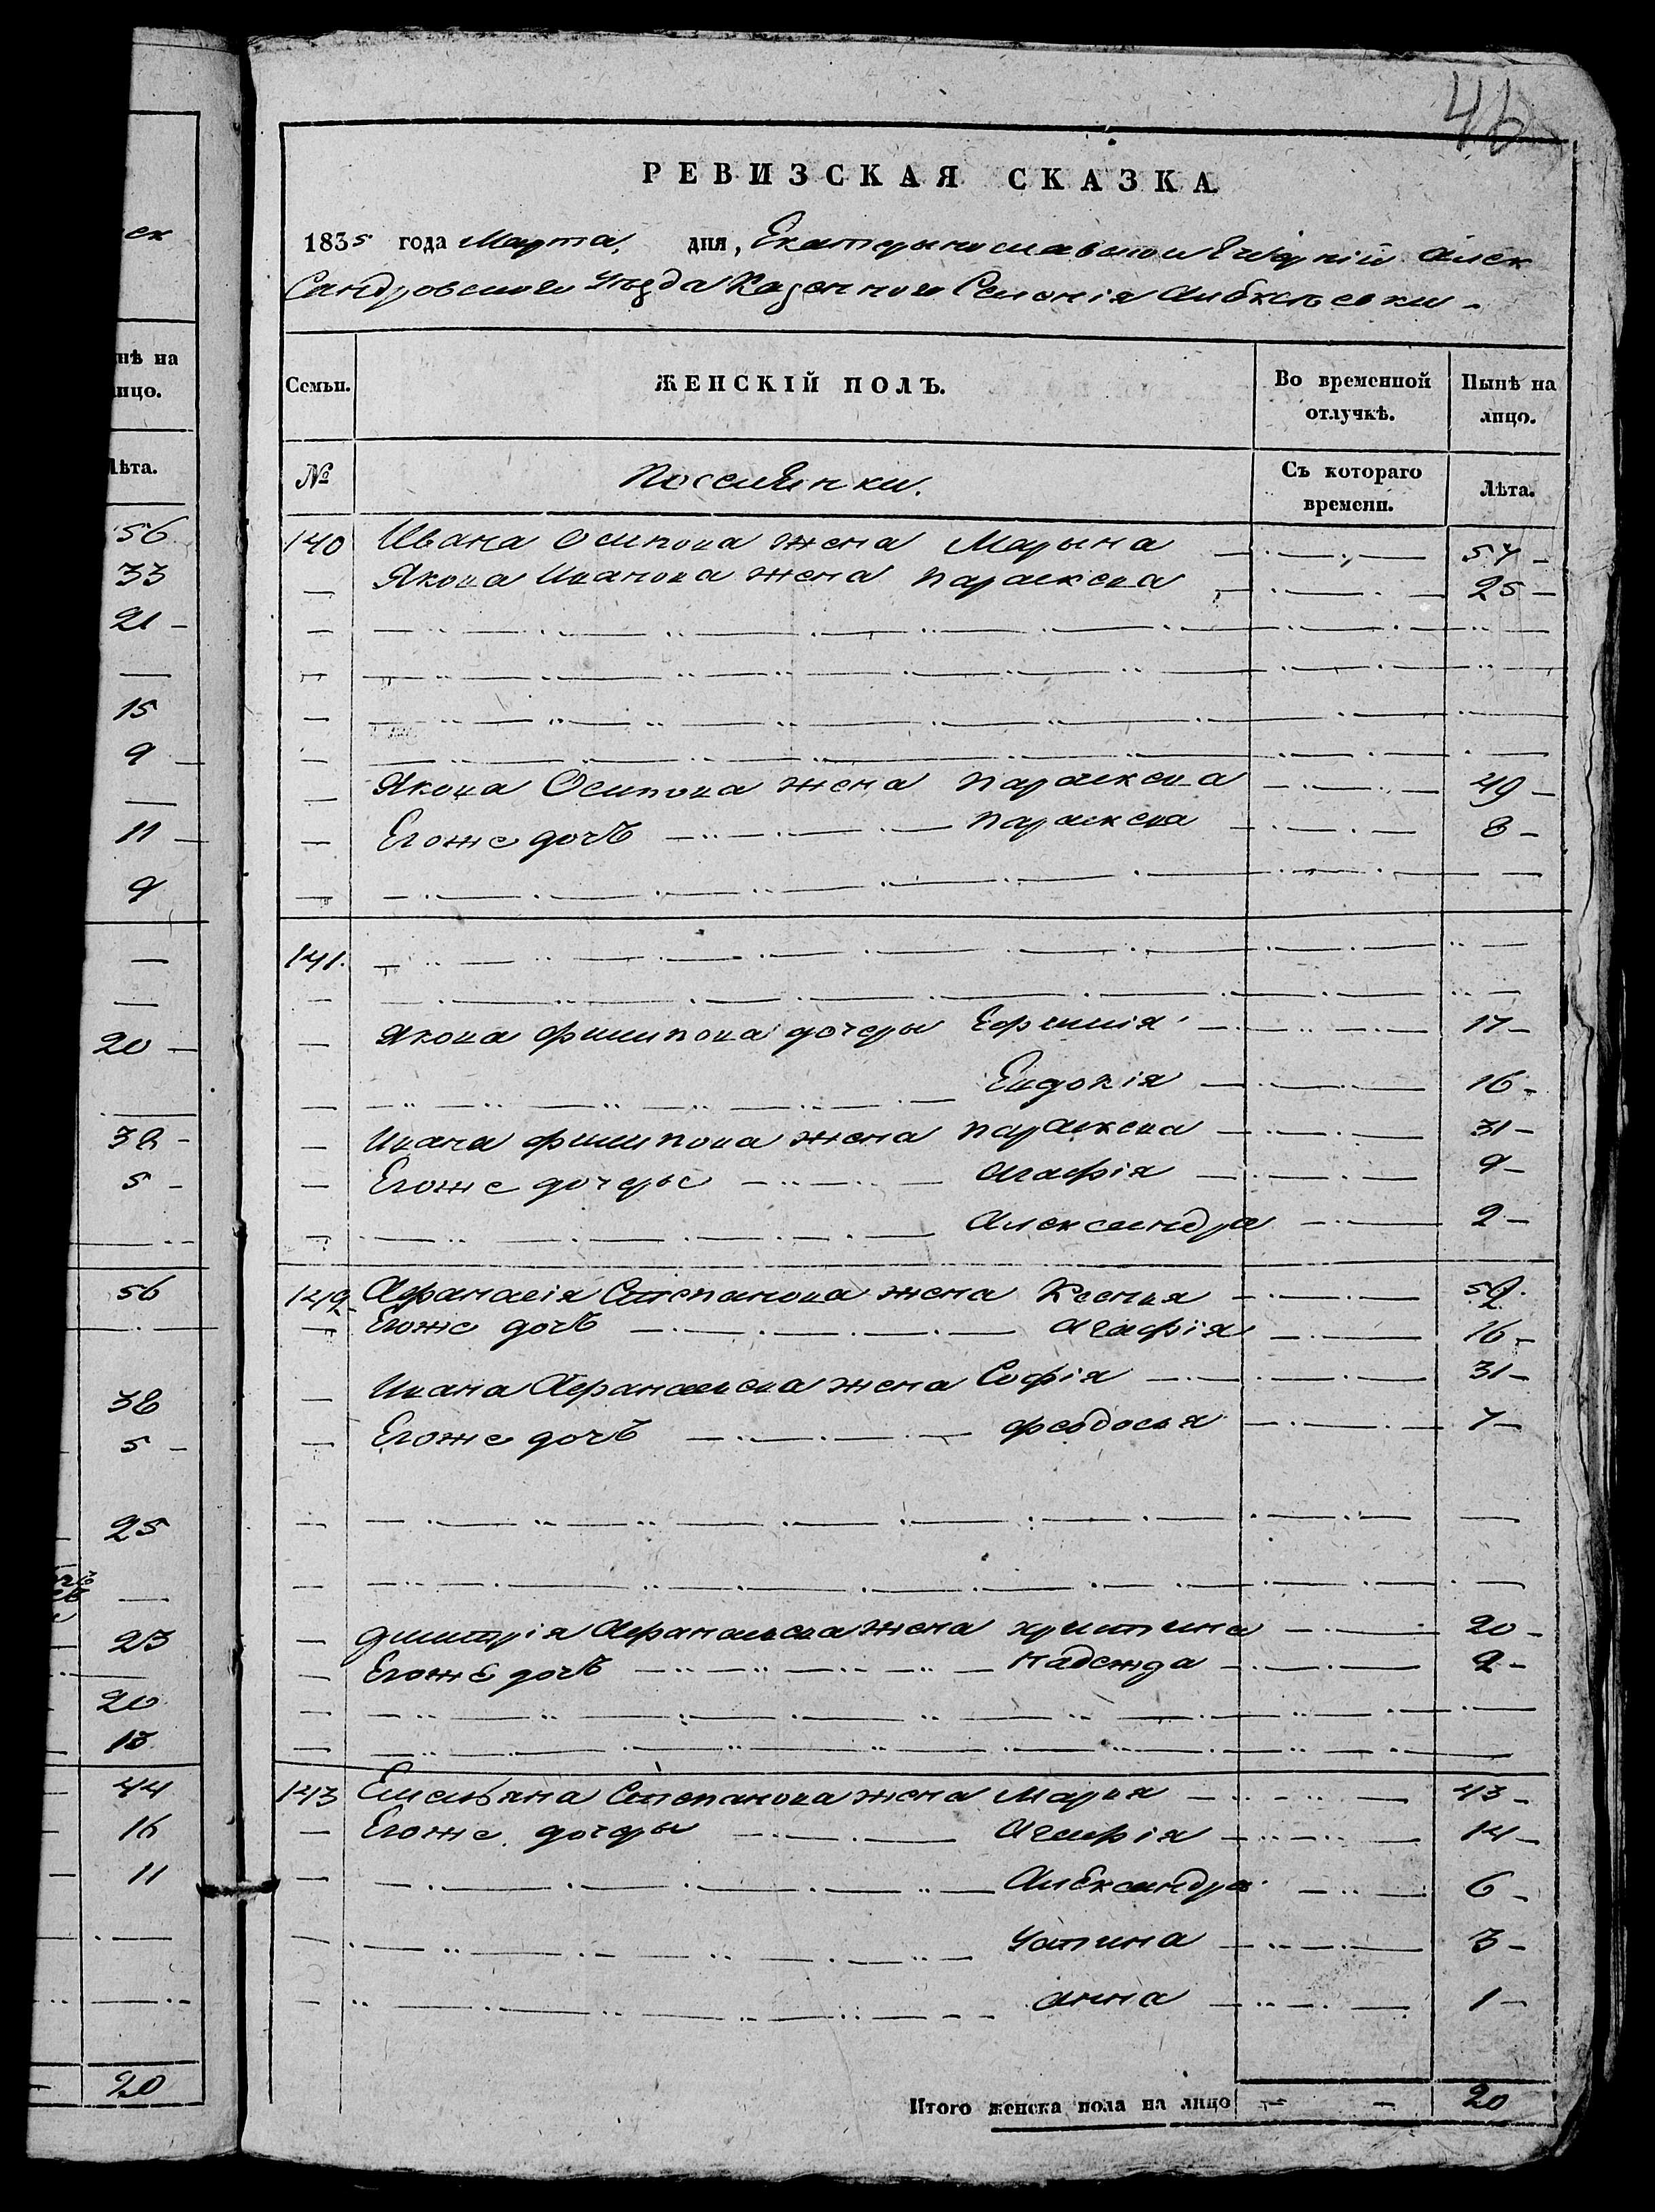 46
РЕВИЗСКАЯ СКАЗКА
1835 года Марта, дня, Екатеринославской Губерній Алек
сандровского Уезда Казенного Селенія
Семьи. ЖЕНСКІЙ ПОЛЪ. Во временной отлучкѣ. Нынѣ на лицо.
№ Поселянки. Съ котораго времени. Лѣта.
140 Ивана Осипова жена Марына 57
Якова Иванова жена Параскева 25
Якова Осипова жена Параскева 49
Егоже дочь Параскева 8
141.
Якова Филипова дочеры 17
Евдокія 16
Ивана Филипова жена Параскева 31
Егоже дочеры Агафія 9
Александра 2
142 Афанасія Степанова жена Ксенья 52
Егоже дочь Агафія 16
Ивана Афанасьева жена Софія 31
Егоже дочь Феодосья 7
Дмитрія Афанасьева жена Христина 20
Егоже дочь Надежда 2
143 Емельяна Степанова жена Марья 43
Егоже дочеры Агафія 14
Александра 6
Устина 3
Анна 1
Итого женска пола на лицо 20
ек
нѣ на
ицо.
Лѣта.
56
33
21
15
9
11
9
20
38
5
56
38
5
25
23
20
13
44
16
11
20